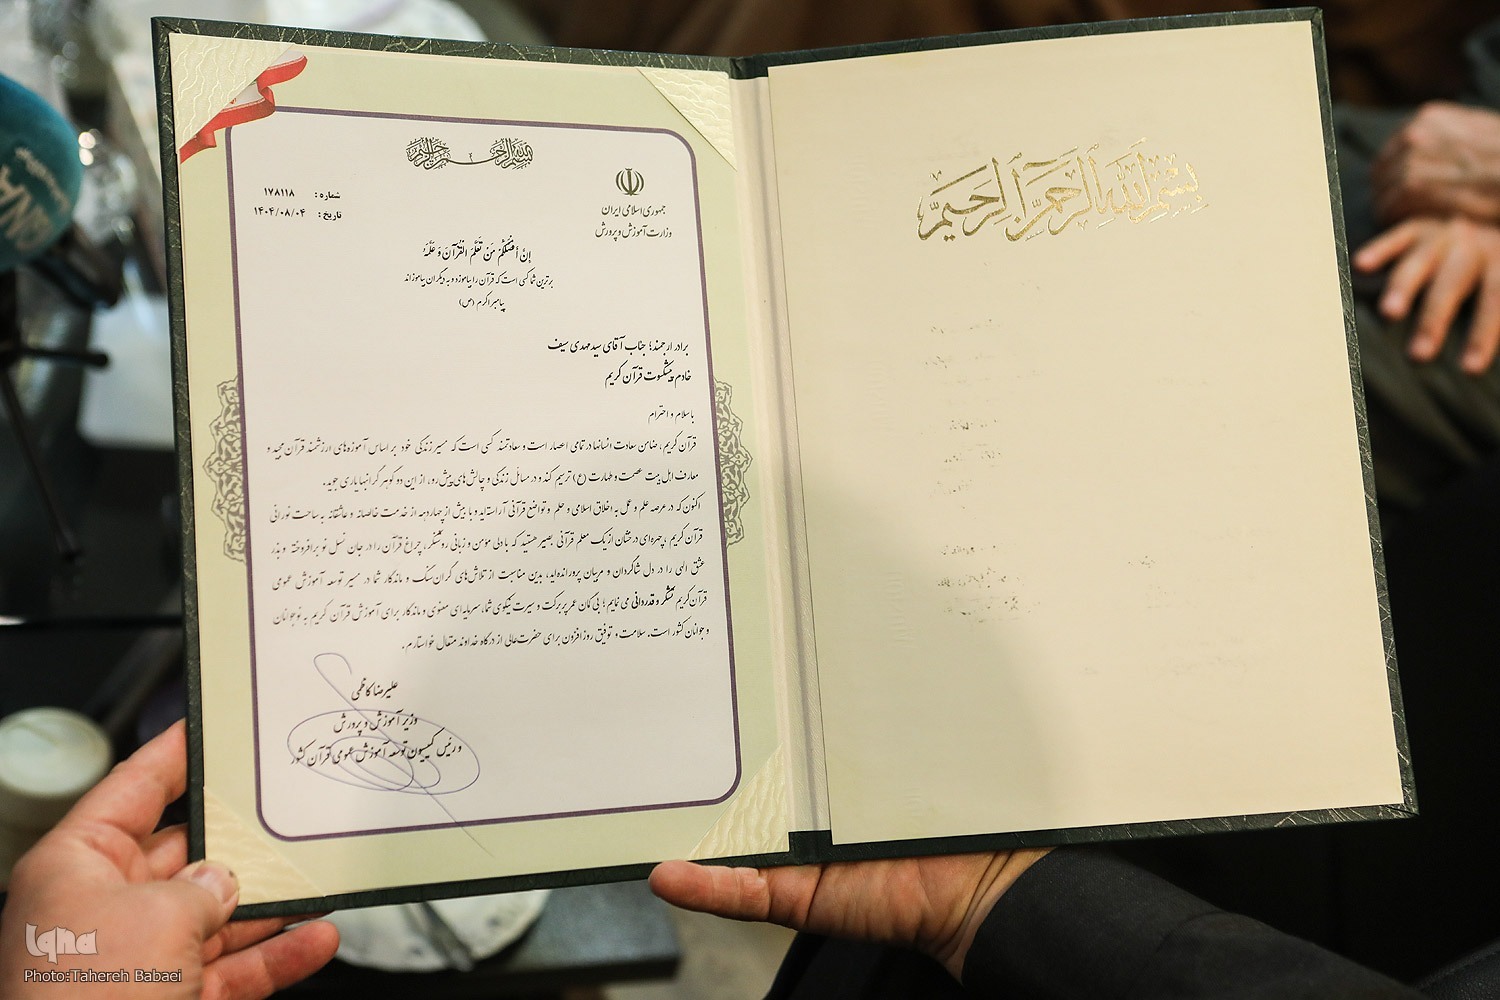 بسم الله الرحمن الرحیم
جمهوری اسلامی ایران
وزارت آموزش و پرورش
شماره : ۱۷۸۱۱۸
تاریخ : ۱۴۰۴/۰۸/۰۴
إنَّ أفضَلَكُم مَن تَعَلَّمَ القُرآنَ وَ عَلَّمَهُ
برترین شما کسی است که قرآن را بیاموزد و به دیگران بیاموزاند
پیامبر اکرم (ص)
برادر ارجمند؛ جناب آقای سید مهدی سیف
خادم پیشکسوت قرآن کریم
با سلام و احترام
قرآن کریم، ضامن سعادت انسانها در تمامی اعصار است و سعادتمند کسی است که مسیر زندگی خود بر اساس آموزه‌های ارزشمند قرآن مجید و
معارف اهل بیت عصمت و طهارت (ع) ترسیم کند و در مسائل زندگی و چالش‌های پیش‌رو، از این دو گوهر گرانبها یاری جوید.
اکنون که در عرصه علم و عمل به اخلاق اسلامی و حلم و تواضع قرآنی آراسته‌اید و با بیش از چهار دهه از خدمت خالصانه و عاشقانه به ساحت نورانی
قرآن کریم، چهره‌ای درخشان از یک معلم قرآنی بصیر هستید که با دلی مؤمن و زبانی روشنگر، چراغ قرآن را در جان نسل نو برافروخته و بذر
عشق الهی را در دل شاگردان و مربیان پرورانده‌اید، بدین مناسبت از تلاش‌های گران‌سنگ و ماندگار شما در مسیر توسعه آموزش عمومی
قرآن کریم تشکر و قدردانی می نمایم؛ بی گمان عمر پربرکت و سیرت نیکوی شما، سرمایه‌ای معنوی و ماندگار برای آموزش قرآن کریم به نوجوانان
و جوانان کشور است. سلامت و توفیق روزافزون برای حضرت‌عالی از درگاه خداوند متعال خواستارم.
علیرضا کاظمی
وزیر آموزش و پرورش
و رئیس کمیسیون توسعه آموزش عمومی قرآن کشور
بسم الله الرحمن الرحیم
iqna
Photo:Tahereh Babaei